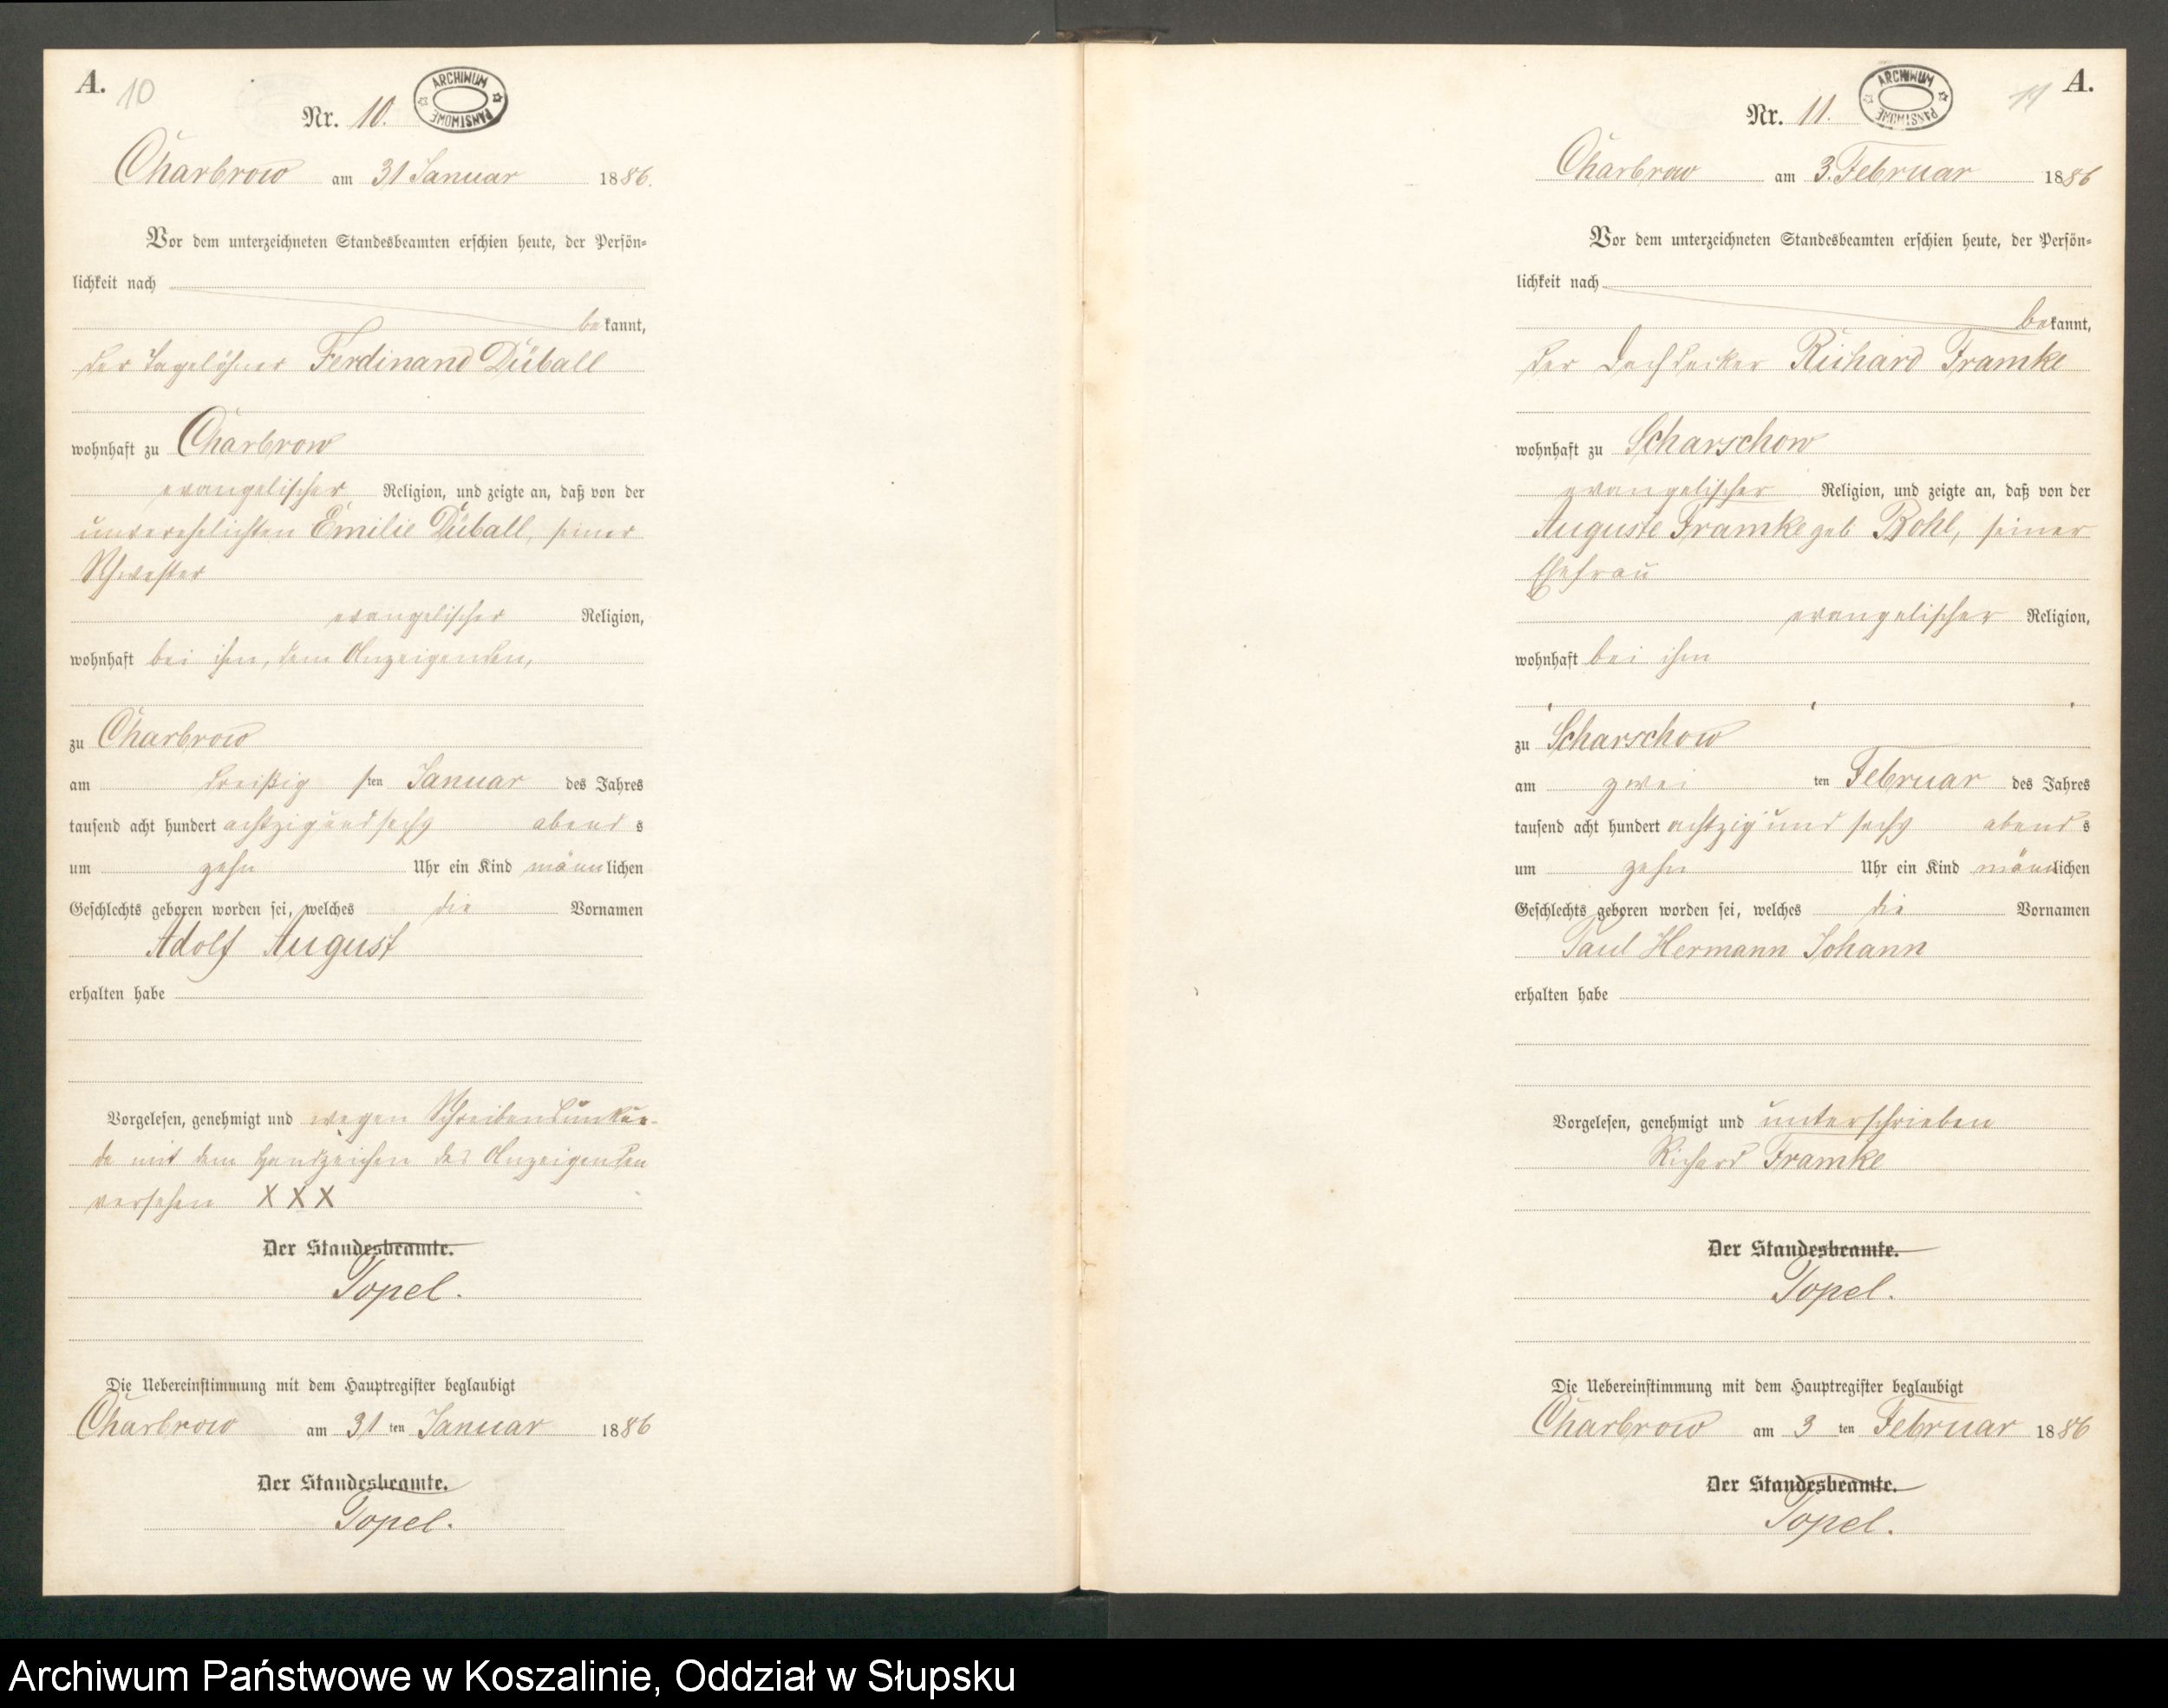 A.
10
Nr. 10.
ARCHIWUM PAŃSTWOWE
Charbrow am 31 Januar 1886.
Vor dem unterzeichneten Standesbeamten erschien heute, der Persön-
lichkeit nach
bekannt,
der Tagelöhner Ferdinand Düball
wohnhaft zu Charbrow
evangelischer Religion, und zeigte an, daß von der
unverehelichten Emilie Düball, seiner
Schwester
evangelischer Religion,
wohnhaft bei ihm, dem Anzeigenden,
zu Charbrow
am dreißigsten Januar des Jahres
tausend acht hundert achtzig und sechs abends
um zehn Uhr ein Kind männlichen
Geschlechts geboren worden sei, welches die Vornamen
Adolf August
erhalten habe
Vorgelesen, genehmigt und wegen Schreibensunkun-
de mit dem Handzeichen des Anzeigenden
versehen XXX
Der Standesbeamte.
Topel.
Die Uebereinstimmung mit dem Hauptregister beglaubigt
Charbrow am 31ten Januar 1886
Der Standesbeamte.
Topel.
A.
11
Nr. 11.
ARCHIWUM PAŃSTWOWE
Charbrow am 3. Februar 1886
Vor dem unterzeichneten Standesbeamten erschien heute, der Persön-
lichkeit nach
bekannt,
der Dachdecker Richard Framke
wohnhaft zu Scharschow
evangelischer Religion, und zeigte an, daß von der
Auguste Framke geb Bohl, seiner
Ehefrau
evangelischer Religion,
wohnhaft bei ihm
zu Scharschow
am zweiten Februar des Jahres
tausend acht hundert achtzig und sechs abends
um zehn Uhr ein Kind männlichen
Geschlechts geboren worden sei, welches die Vornamen
Paul Hermann Johann
erhalten habe
Vorgelesen, genehmigt und unterschrieben
Richard Framke
Der Standesbeamte.
Topel.
Die Uebereinstimmung mit dem Hauptregister beglaubigt
Charbrow am 3ten Februar 1886
Der Standesbeamte.
Topel.
Archiwum Państwowe w Koszalinie, Oddział w Słupsku